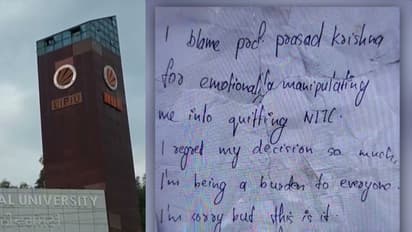 LPU
AL UNIVERSITY
I blame prof. prasad krishna
for emotionally manipulating
me into quitting NITC.
I regret my decision so much,
I'm being a burden to everyone.
I'm sorry but this is it.